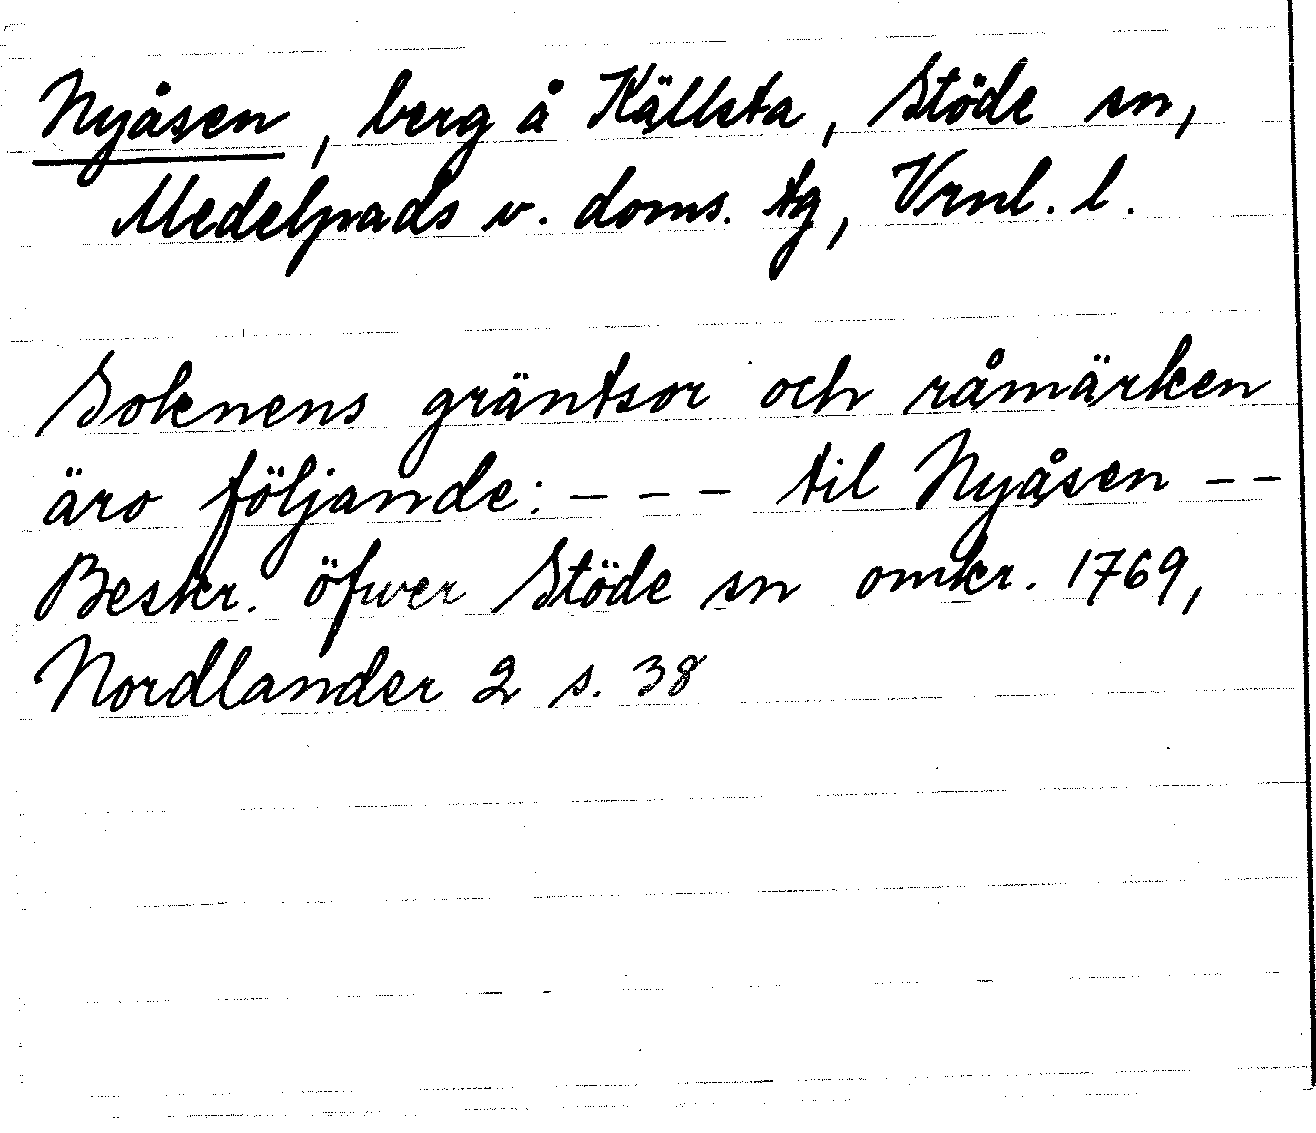 Nyåsen, berg å Källsta, Stöde sn,
Medelpads v. doms. tg, Vrnl. l.
Soknens gräntsor och råmärken
äro följande: - - - til Nyåsen - -
Beskr. öfwer Stöde sn omkr. 1769,
Nordlander 2 s. 38